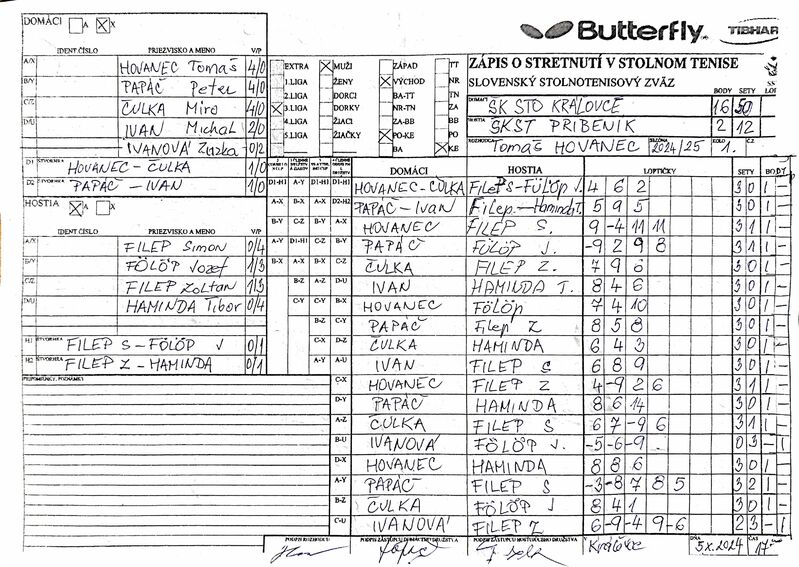 DOMÁCI A X
IDENT. ČÍSLO PRIEZVISKO A MENO V/P
A/X HOVANEC Tomáš 4/0
B/Y PAPÁČ Peter 4/0
C/Z ČULKA Miro 4/0
D/U IVAN Michal 2/0
IVANOVÁ Zuzka 0/2
D1 ŠTVORHRA HOVANEC-ČULKA 1/0
D2 ŠTVORHRA PAPÁČ-IVAN 1/0
HOSTIA A X
IDENT. ČÍSLO PRIEZVISKO A MENO V/P
A/X FILEP Simon 0/4
B/Y FÖLÖP Jozef 1/3
C/Z FILEP Zoltan 1/3
D/U HAMINDA Tibor 0/4
H1 ŠTVORHRA FILEP S-FÖLÖP J 0/1
H2 ŠTVORHRA FILEP Z-HAMINDA 0/1
PRIPOMIENKY, POZNÁMKY
EXTRA MUŽI ZÁPAD TT
1.LIGA ŽENY VÝCHOD NR
2.LIGA DORCI BA-TT TN
3.LIGA DORKY NR-TN ZA
4.LIGA ŽIACI ZA-BB BB
5.LIGA ŽIAČKY PO-KE PO
BA KE
Butterfly
TIBHAR
ZÁPIS O STRETNUTÍ V STOLNOM TENISE
SLOVENSKÝ STOLNOTENISOVÝ ZVÄZ
BODY SETY
DOMÁCI ŠK STO KRÁĽOVCE 16 50
HOSTIA ŠKST PRIBENIK 2 12
ROZHODCA Tomáš HOVANEC SEZÓNA 2024/25 KOLO 1.
DOMÁCI HOSTIA LOPTIČKY SETY BODY
D1-H1 A-Y D1-H1 D1-H1 HOVANEC-ČULKA FILEP S-FÖLÖP J. 4 6 2 3 0 1 -
A-X B-X A-X D2-H2 PAPÁČ-IVAN Filep-Haminda T. 5 9 5 3 0 1 -
B-Y C-Z B-Y A-X HOVANEC FILEP S. 9 -4 11 11 3 1 1 -
A-Y D1-H1 C-Z B-Y PAPÁČ FÖLÖP J. -9 2 9 8 3 1 1 -
B-X A-X B-X C-Z ČULKA FILEP Z. 7 9 6 3 0 1 -
B-Z A-Z D-U IVAN HAMINDA T. 8 4 6 3 0 1 -
C-Y C-Y B-X HOVANEC FÖLÖP 7 4 10 3 0 1 -
B-Z C-Y PAPÁČ Filep Z 8 5 8 3 0 1 -
C-X D-Z ČULKA HAMINDA 6 4 3 3 0 1 -
A-Y A-U IVAN FILEP S 6 8 9 3 0 1 -
C-X HOVANEC FILEP Z 4 -9 2 6 3 1 1 -
D-Y PAPÁČ HAMINDA 8 6 14 3 0 1 -
A-Z ČULKA FILEP S 6 7 -9 6 3 1 1 -
B-U IVANOVÁ FÖLÖP J. -5 -6 -9 0 3 - 1
D-X HOVANEC HAMINDA 8 8 6 3 0 1 -
A-Y PAPÁČ FILEP S -3 -8 7 8 5 3 2 1 -
B-Z ČULKA FÖLÖP J 8 4 1 3 0 1 -
C-U IVANOVÁ FILEP Z 6 -9 -4 9 -6 2 3 - 1
PODPIS ROZHODCU PODPIS ZÁSTUPCU DOMÁCEHO DRUŽSTVA PODPIS ZÁSTUPCU HOSŤUJÚCEHO DRUŽSTVA V Kráľovce DŇA 5.X.2024 ČAS 17